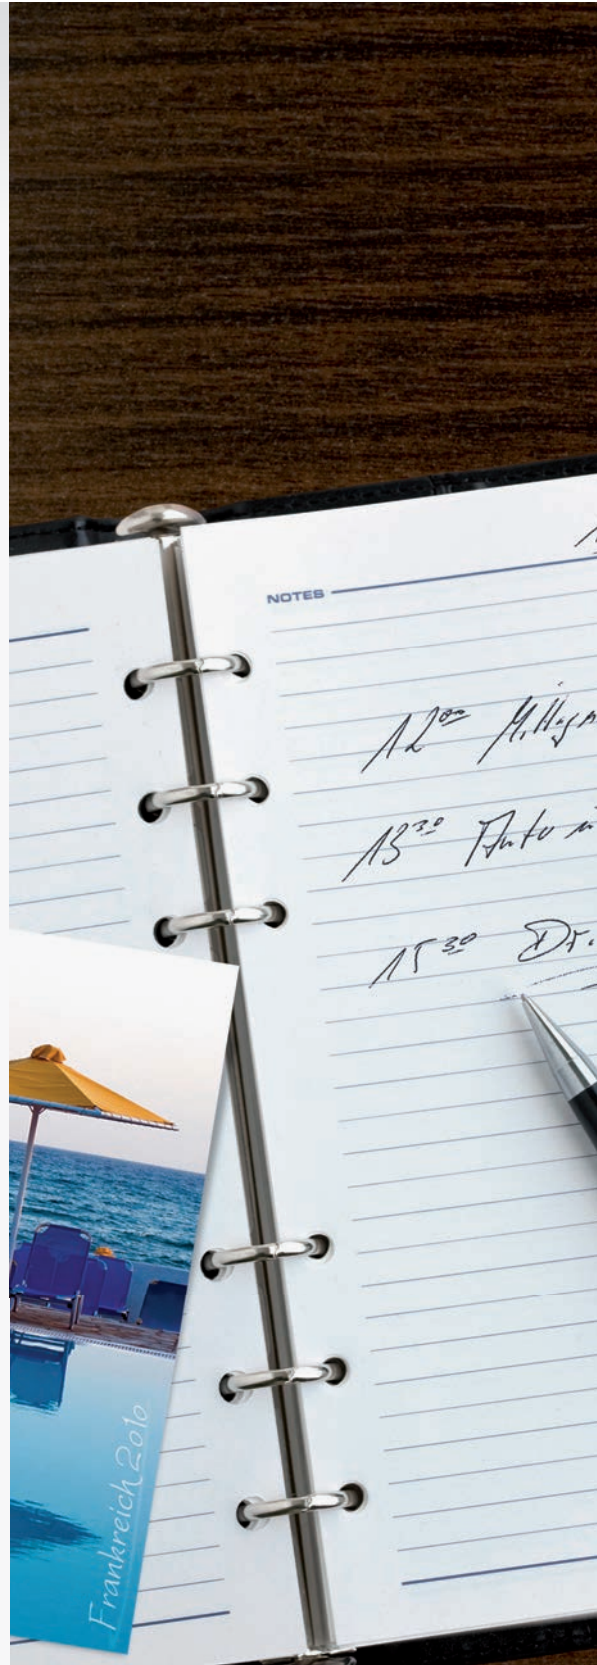 NOTES
12⁰⁰
13³⁰ Auto
15³⁰ Dr.
Frankreich 2010